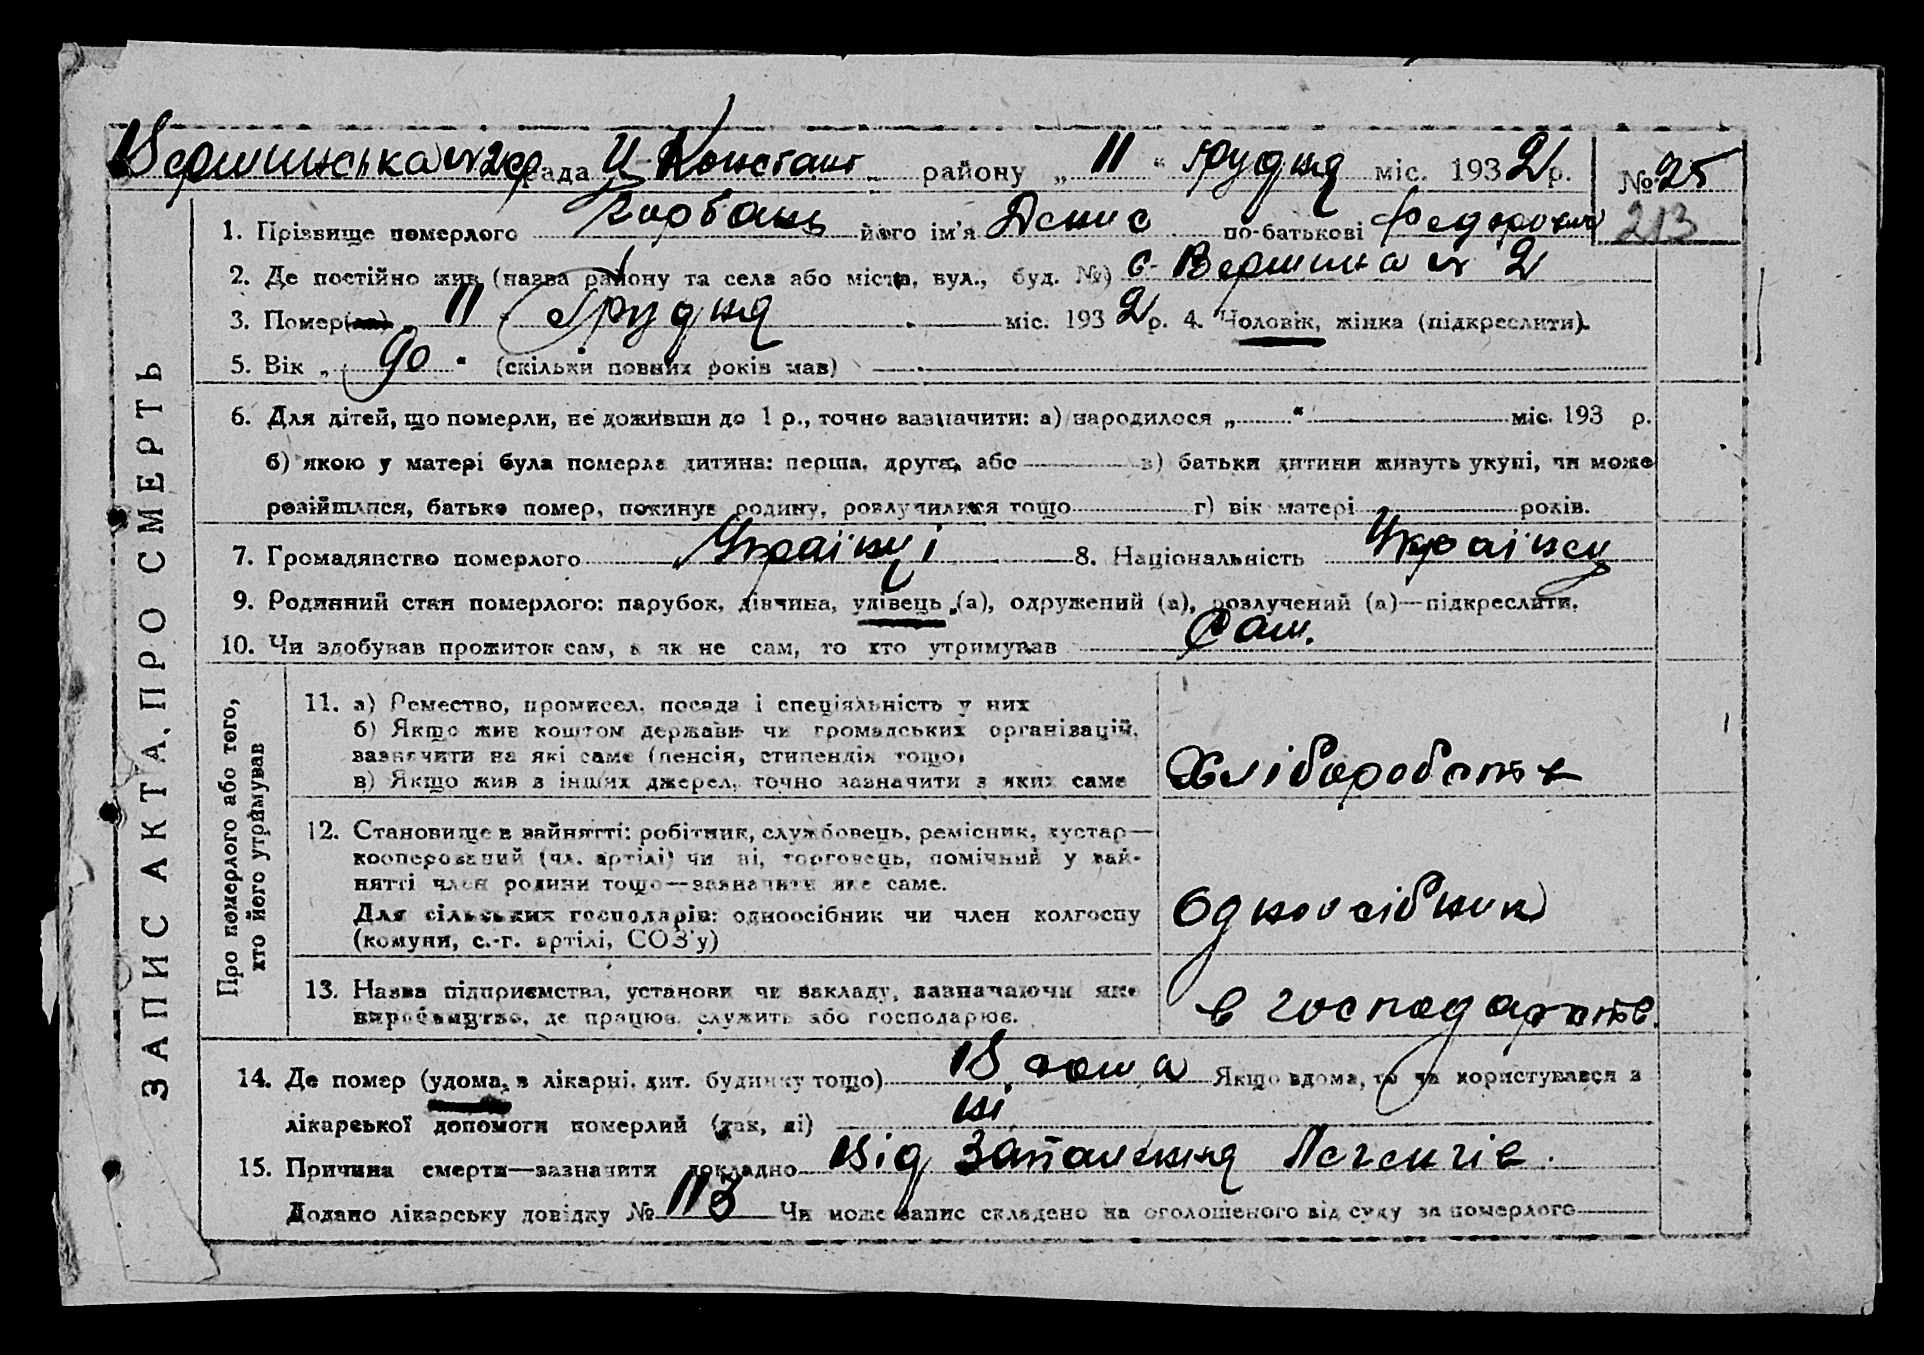 Вершинська №2 рада Н-Констант району „ 11 “ Грудня міс. 1932 р. № 25
1. Прізвище померлого Корбань його ім'я Денис по-батькові Федорович 213
2. Де постійно жив (назва району та села або міста, вул., буд. №) с. Вершина № 2
3. Помер(ла) „ 11 Грудня міс. 1932 р. 4. Чоловік, жінка (підкреслити).
5. Вік „ 90 “ (скільки повних років мав)
6. Для дітей, що померли, не доживши до 1 р., точно зазначити: а) народилося „ “ міс. 193 р.
б) якою у матері була померла дитина: перша, друга, або в) батьки дитини живуть укупі, чи може
розійшлися, батько помер, покинув родину, розлучилися тощо г) вік матері років.
7. Громадянство померлого Українці 8. Національність Українец
9. Родинний стан померлого: парубок, дівчина, удівець (а), одружений (а), розлучений (а)—підкреслити.
10. Чи здобував прожиток сам, а як не сам, то хто утримував Сам.
ЗАПИС АКТА ПРО СМЕРТЬ
Про померлого або того,
хто його утримував
11. а) Ремество, промисел, посада і спеціяльність у них
б) Якщо жив коштом держави чи громадських організацій,
зазначити на які саме (пенсія, стипендія тощо)
в) Якщо жив з інших джерел, точно зазначити з яких саме
Хліборобств
12. Становище в зайнятті: робітник, службовець, ремісник, кустар—
кооперований (чл. артілі) чи ні, торговець, помічний у зай-
нятті член родини тощо—зазначити яке саме.
Для сільських господарів: одноосібник чи член колгоспу
(комуни, с.-г. артілі, СОЗ'у)
Одноосібник
13. Назва підприємства, установи чи закладу, зазначаючи яке
виробництво, де працює, служить або господарює.
в господарств.
14. Де помер (удома, в лікарні, дит. будинку тощо) В дома Якщо вдома, то чи користувався з
лікарської допомоги померлий (так, ні) ні
15. Причина смерти—зазначити докладно Від Запалення Легенів.
Додано лікарську довідку № 113 Чи може запис складено на оголошеного від суду за померлого